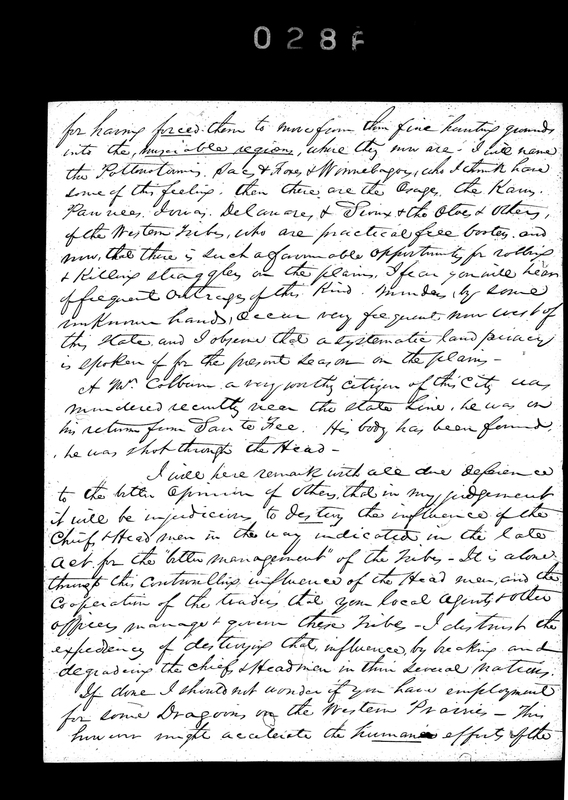 028F
for having forced them to move from their fine hunting grounds
into the, miserable regions, where they now are - I will name
the Pottowatamies, Sac, & Foxes & Winnebagoes, who I think have
some of this feeling. then there are the Osages, the Kaws.
Pawnees. Iowas. Delawares, & Sioux & the Otoes & others,
of the Western Tribes, who are practical free booters. and
now, that there is such a favourable opportunity for robbing
& Killing stragglers on the plains, I fear you will hear
of frequent outrages of this Kind. Murders, by some
unknown hands, occur very frequent, now west of
this state. and I observe that a systematic land piracy
is spoken of for the present season on the plains -
A Mr. Colburn a very worthy citizen of this City was
murdered recently near the state line, he was on
his return from Santa Fee. His body has been found,
, he was shot through the Head -
I will here remark with all due deference
to the better opinion of others, that in my judgement
it will be injudicious to destroy the influence of the
Chiefs & Head men in the way indicated in the late
act for the "better management" of the Tribes - It is alone
through this controlling influence of the Head men, and the
cooperation of the traders that your local agents & other
officers manage & govern these Tribes - I distrust the
expediency of destroying that, influence, by breaking and
degrading the chiefs & Headmen in their several nations.
If done I should not wonder if you have employment
for some Dragoons on the Western Prairies - This
however might accelerate the humane efforts of the